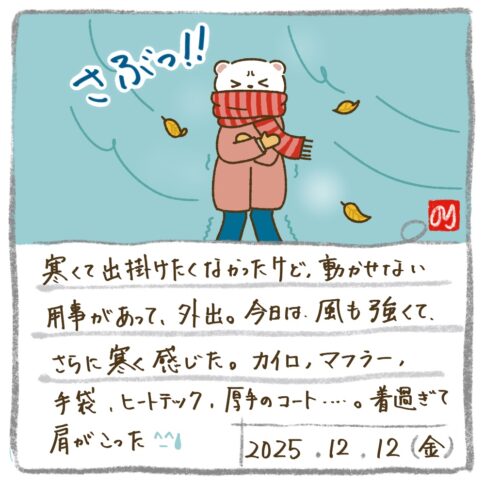 さぶっ!!
のり
寒くて出掛けたくなかったけど、動かせない
用事があって、外出。今日は、風も強くて、
さらに寒く感じた。カイロ、マフラー、
手袋、ヒートテック、厚手のコート‥‥。着過ぎて
肩がこった ^^;
2025.12.12(金)